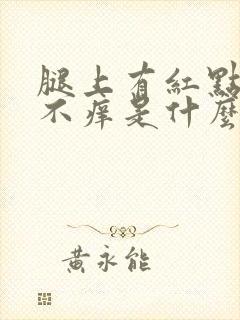 腿上有紅點
不痒是什麼
黃永能